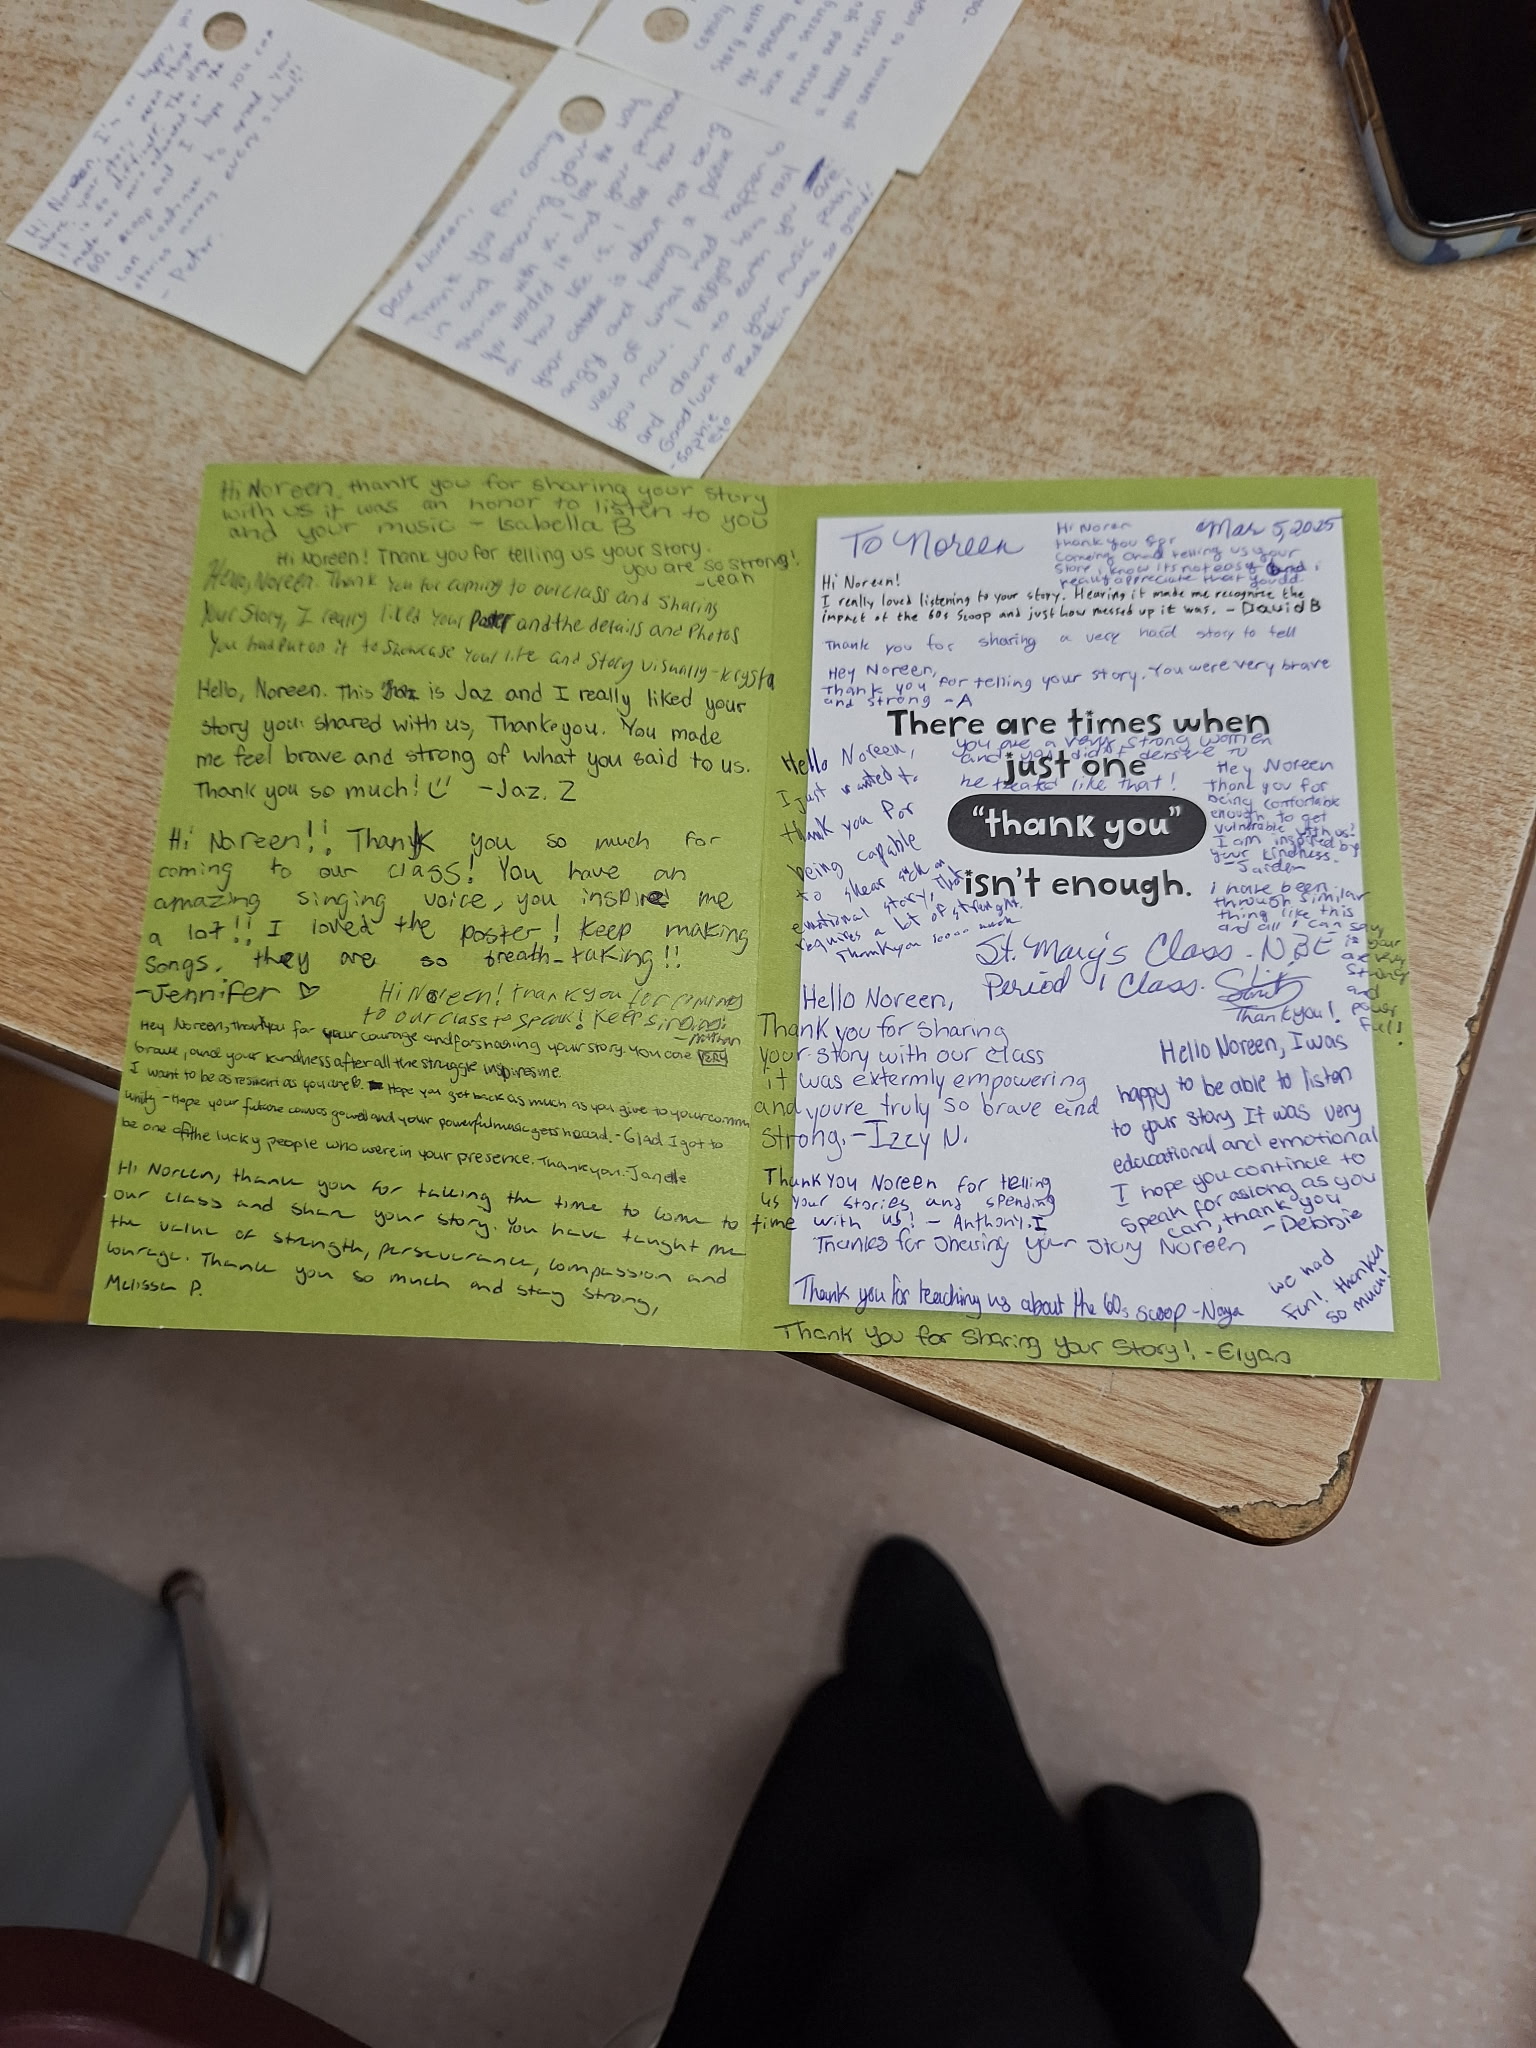 Hi Noreen, I'm so happy you
share your story even though
it is so difficult. The day
made me more educated on the
60s scoop and I hope you can
can continue to spread your
stories across every school!!
- Peter.
Dear Noreen,
Thank you for coming
in and sharing your
stories with us. I love the way
you worded it and your perspective
on how life is. I love how
your attitude is about not being
angry and having a positive
view of what had happen to
you now. I enjoyed how real
and down to earth you are.
Good luck on your music path!
Redskin was so good!
- Sophie
Sto
coming
story with
eye opening
such a strong
person and you
a better version
you continue to
Hi Noreen, thank you for sharing your story
with us it was an honor to listen to you
and your music - Isabella B
Hi Noreen! Thank you for telling us your story.
you are so strong!
-Leah
Hello, Noreen. Thank You for coming to our class and sharing
Your Story, I really liked Your Poster and the details and Photos
You had Put on it to Showcase Your life and Story visually - Krysta
Hello, Noreen. This Jaz is Jaz and I really liked your
story you shared with us, Thank you. You made
me feel brave and strong of what you said to us.
Thank you so much! -Jaz. Z
Hi Noreen!! Thank you so much for
coming to our class! You have an
amazing singing voice, you inspire me
a lot!! I loved the poster! Keep making
songs, they are so breath-taking!!
-Jennifer ♡
Hi Noreen! Thank you for coming
to our class to speak! Keep singing!
-Nathan
Hey Noreen, thank you for your courage and for sharing your story. You are very
brave, and your kindness after all the struggle inspires me.
I want to be as resilient as you are. Hope you get back as much as you give to your comm
unity - Hope your future canvas go well and your powerful music gets heard. - Glad I got to
be one of the lucky people who were in your presence. Thank you. Janelle
Hi Noreen, thank you for taking the time to come to
our class and share your story. You have taught me
the value of strength, perseverance, compassion and
courage. Thank you so much and stay strong,
Melissa P.
To Noreen
Mar 5, 2025
Hi Noren
thank you for
coming and telling us your
story i know its not easy and i
really appreciate that you did
Hi Noreen!
I really loved listening to your story. Hearing it made me recognize the
impact of the 60s Scoop and just how messed up it was. - David B
Thank you for sharing a very hard story to tell
Hey Noreen,
Thank you for telling your story. You were very brave
and strong -A
There are times when
just one
"thank you"
isn't enough.
you are a very strong women
and you didn't deserve to
be treated like that!
Hello Noreen,
I just wanted to
thank you for
being capable
to shear such an
emotional story, that
requires a lot of strenght.
Thank you soooo much
Hey Noreen
Thank you for
being comfortable
enough to get
vulnerable with us!
I am inspired by
your kindness.
-Jaiden
i have been
through similar
thing like this
and all i can say
is your
are very
strong
and
power
full!
St. Mary's Class - NBE
Period 1 Class.
Thank you!
Hello Noreen,
Thank you for sharing
your story with our class
it was extermly empowering
and youre truly so brave and
strong. - Izzy N.
Hello Noreen, I was
happy to be able to listen
to your story It was very
educational and emotional
I hope you continue to
speak for aslong as you
can, thank you
-Debbie
Thank You Noreen for telling
us your stories and spending
time with us! - Anthony.I
Thanks for sharing your story Noreen
Thank you for teaching us about the 60s scoop - Naya
we had
fun! thanks
so much!
Thank You for Sharing Your Story! - Elyas